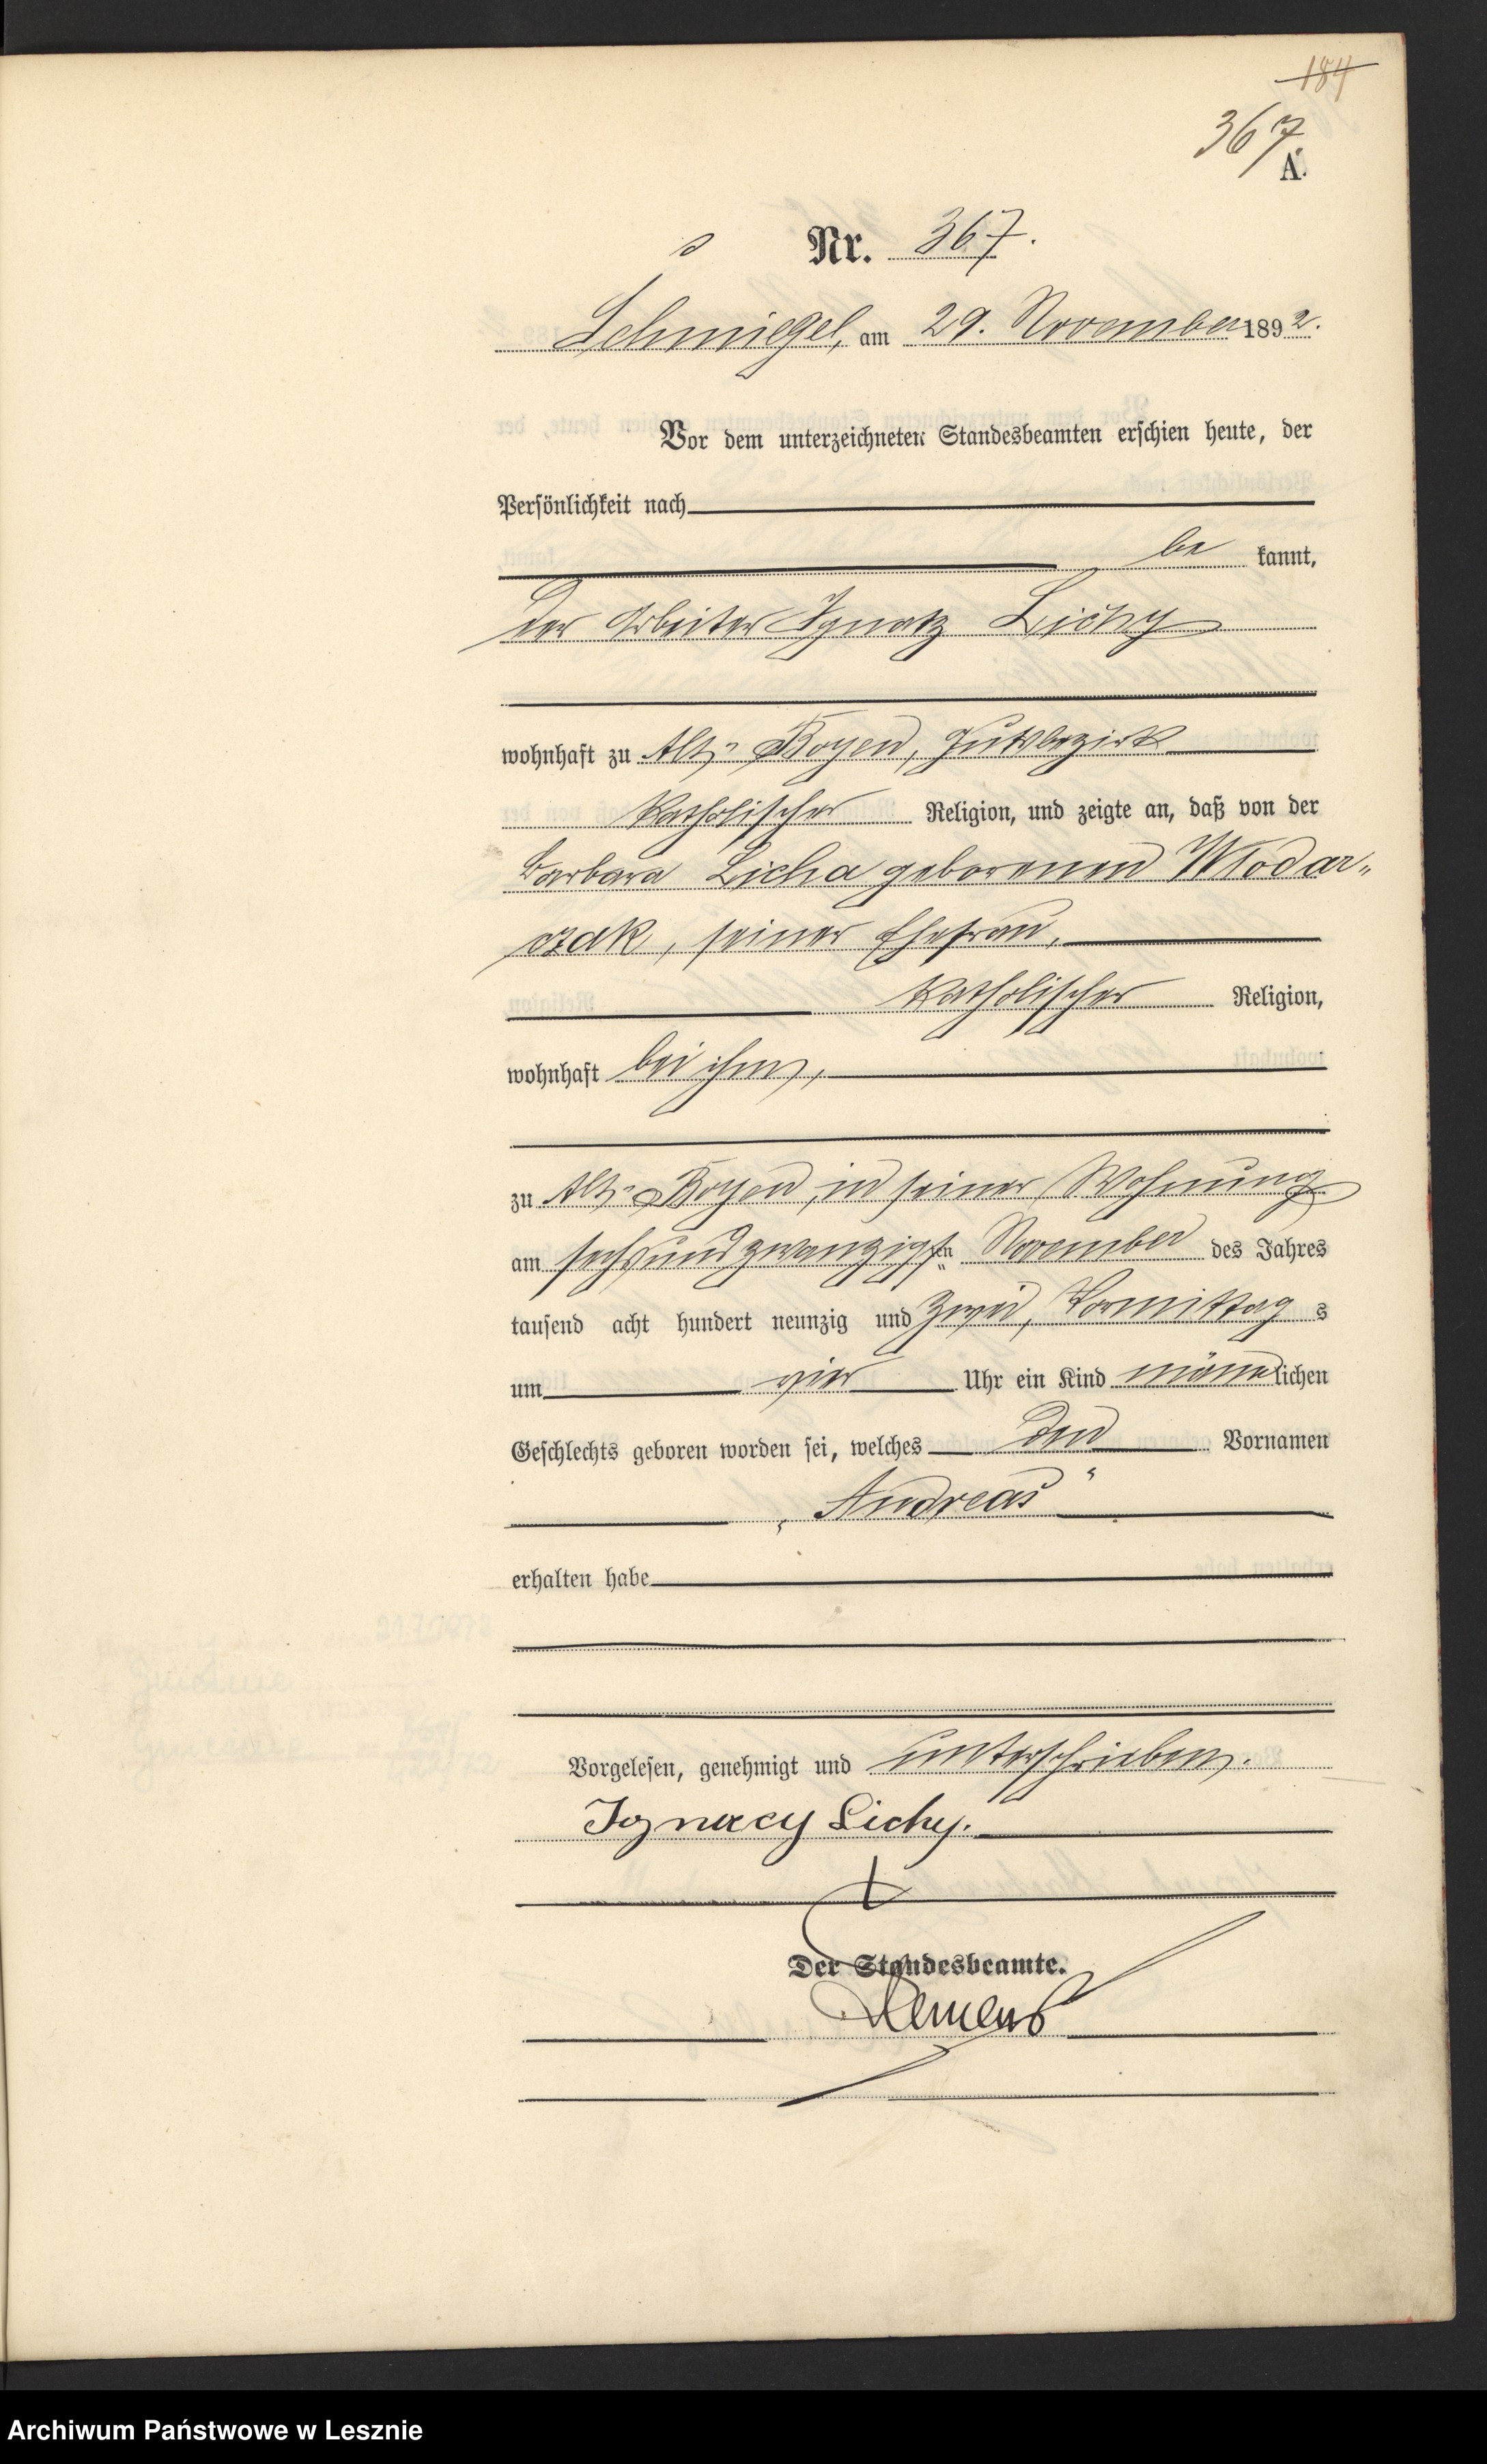 184
367
A.
Nr. 367.
Schmiegel, am 29. November 1892.
Vor dem unterzeichneten Standesbeamten erschien heute, der
Persönlichkeit nach
be kannt,
der Arbeiter Ignatz Lichy
wohnhaft zu Alt-Boyen, Gutsbezirk
katholischer Religion, und zeigte an, daß von der
Barbara Licha geborenen Wlodar-
czak, seiner Ehefrau,
katholischer Religion,
wohnhaft bei ihm,
zu Alt-Boyen, in seiner Wohnung
am sechsundzwanzigsten November des Jahres
tausend acht hundert neunzig und zwei, Vormittag s
um vier Uhr ein Kind männlichen
Geschlechts geboren worden sei, welches den Vornamen
„Andreas“
erhalten habe
Vorgelesen, genehmigt und unterschrieben.
Ignacy Lichy.
Der Standesbeamte.
Archiwum Państwowe w Lesznie